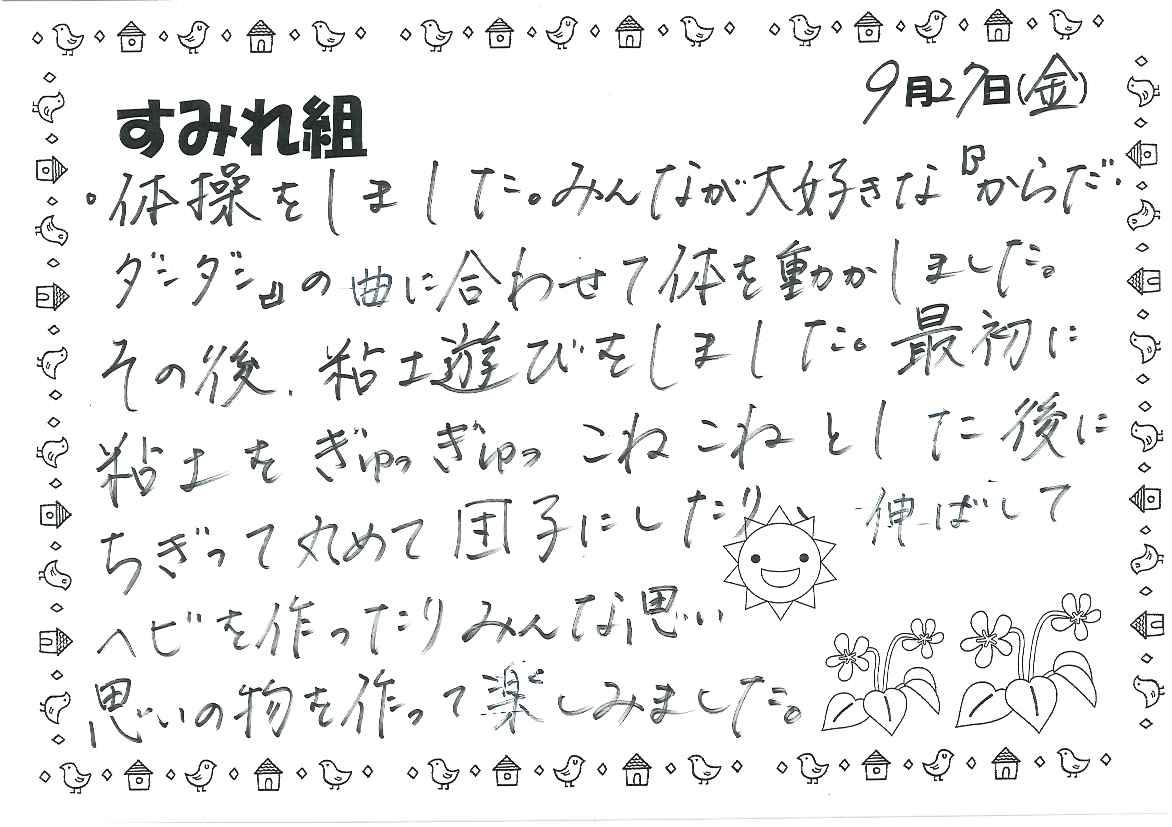 9月27日(金)
すみれ組
・体操をしました。みんなが大好きな『からだ
ダンダン』の曲に合わせて体を動かしました。
その後、粘土遊びをしました。最初に
粘土をぎゅっぎゅっこねこねとした後に
ちぎって丸めて団子にしたり、伸ばして
ヘビを作ったりみんな思い
思いの物を作って楽しみました。